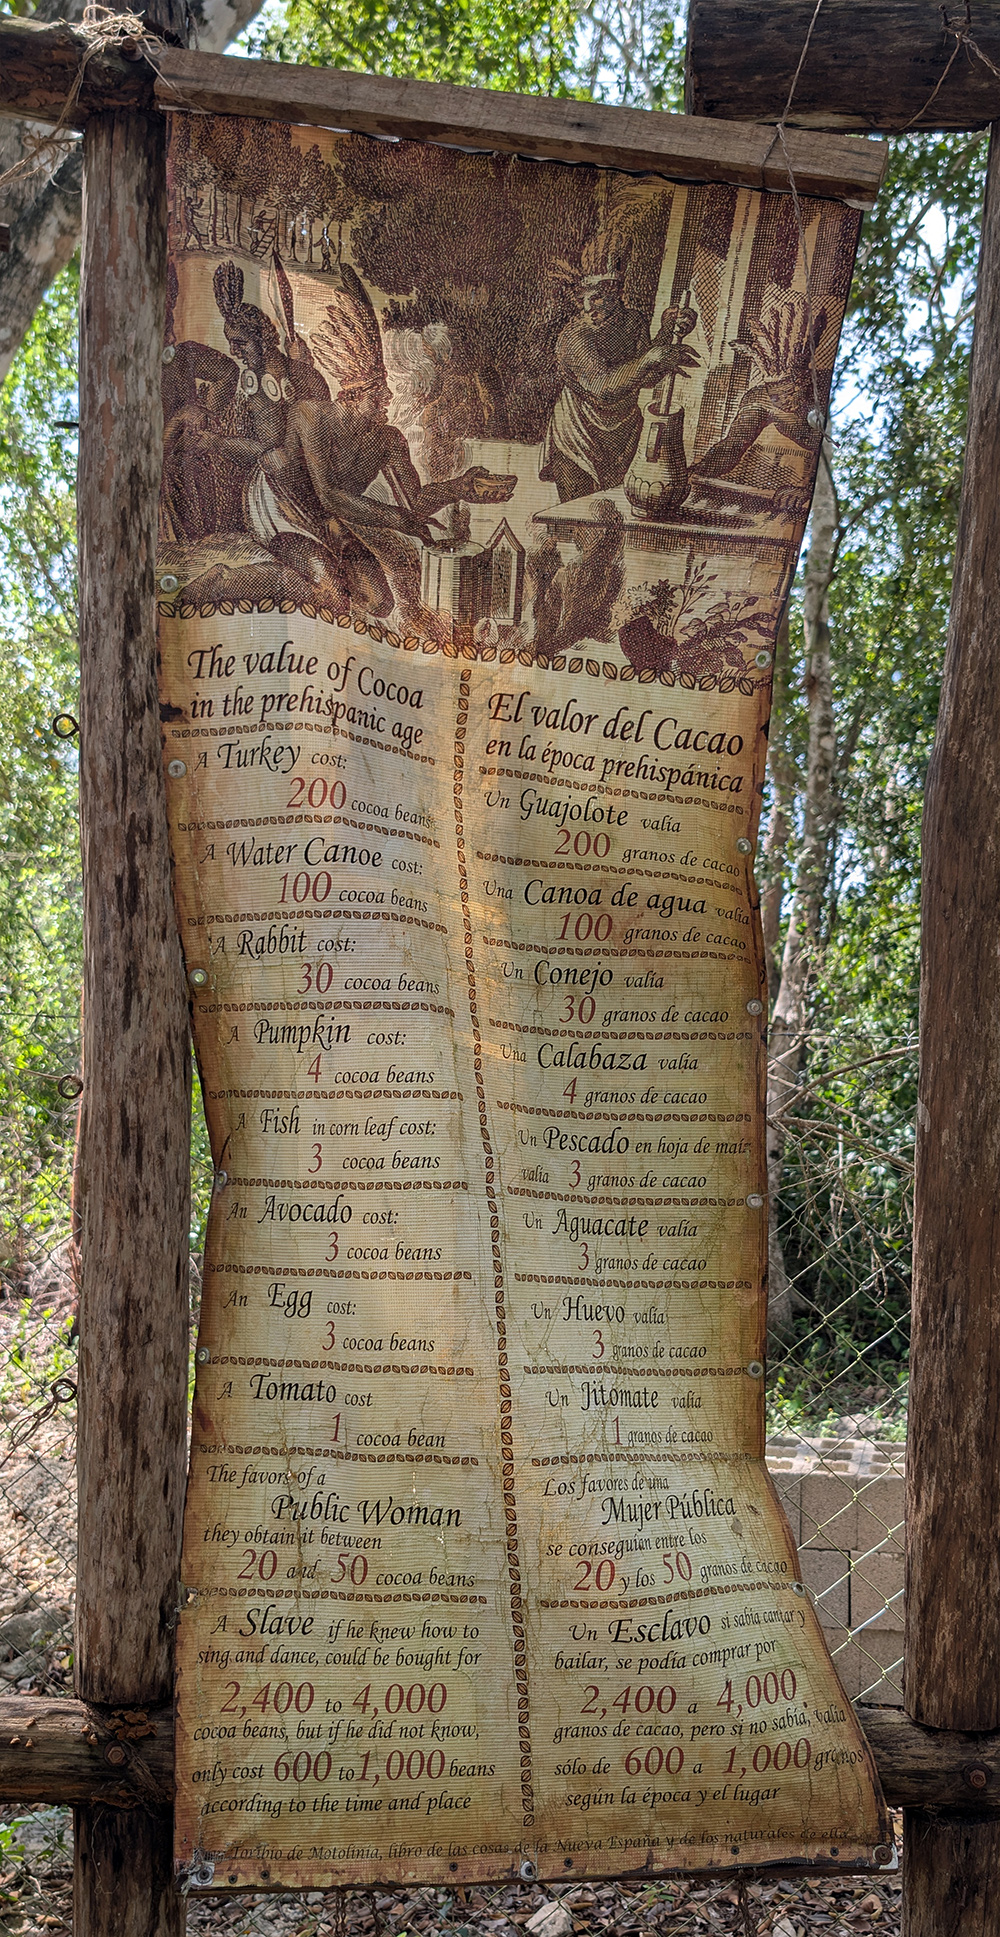 The value of Cocoa
in the prehispanic age
A Turkey cost:
200 cocoa beans
A Water Canoe cost:
100 cocoa beans
A Rabbit cost:
30 cocoa beans
A Pumpkin cost:
4 cocoa beans
A Fish in corn leaf cost:
3 cocoa beans
An Avocado cost:
3 cocoa beans
An Egg cost:
3 cocoa beans
A Tomato cost
1 cocoa bean
The favors of a
Public Woman
they obtain it between
20 and 50 cocoa beans
A Slave if he knew how to
sing and dance, could be bought for
2,400 to 4,000
cocoa beans, but if he did not know,
only cost 600 to 1,000 beans
according to the time and place
El valor del Cacao
en la época prehispánica
Un Guajolote valía
200 granos de cacao
Una Canoa de agua valía
100 granos de cacao
Un Conejo valía
30 granos de cacao
Una Calabaza valía
4 granos de cacao
Un Pescado en hoja de maíz
valía 3 granos de cacao
Un Aguacate valía
3 granos de cacao
Un Huevo valía
3 granos de cacao
Un Jitomate valía
1 granos de cacao
Los favores de una
Mujer Pública
se conseguían entre los
20 y los 50 granos de cacao
Un Esclavo si sabía cantar y
bailar, se podía comprar por
2,400 a 4,000
granos de cacao, pero si no sabía, valía
sólo de 600 a 1,000 granos
según la época y el lugar
Toribio de Motolinia, libro de las cosas de la Nueva España y de los naturales de ella